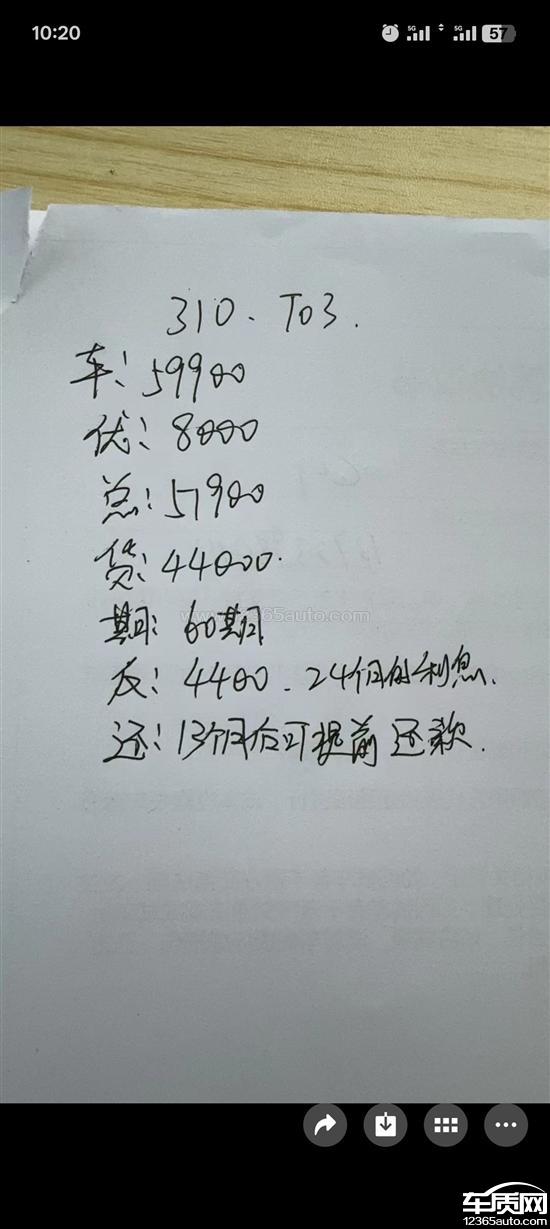 10:20
5G
5G
57
310. T03.
车: 59900
优: 8000
总: 51900
贷: 44000.
www.12365auto.com
期: 60期
反: 4400. 24个月的利息.
还: 13个月后可提前还款.
车质网
12365auto.com